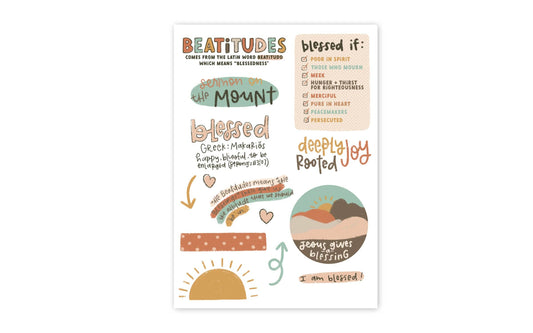 BEATITUDES
COMES FROM THE LATIN WORD BEATITUDO
WHICH MEANS "BLESSEDNESS"
sermon on
the MOUNT
blessed
Greek: Makarios
happy, blissful, to be
enlarged
The Beatitudes means the
the attitude that we should
be in
blessed if:
POOR IN SPIRIT
THOSE WHO MOURN
MEEK
HUNGER + THIRST
FOR RIGHTEOUSNESS
MERCIFUL
PURE IN HEART
PEACEMAKERS
PERSECUTED
deeply
Rooted Joy
Jesus gives
a
blessing
I am blessed!